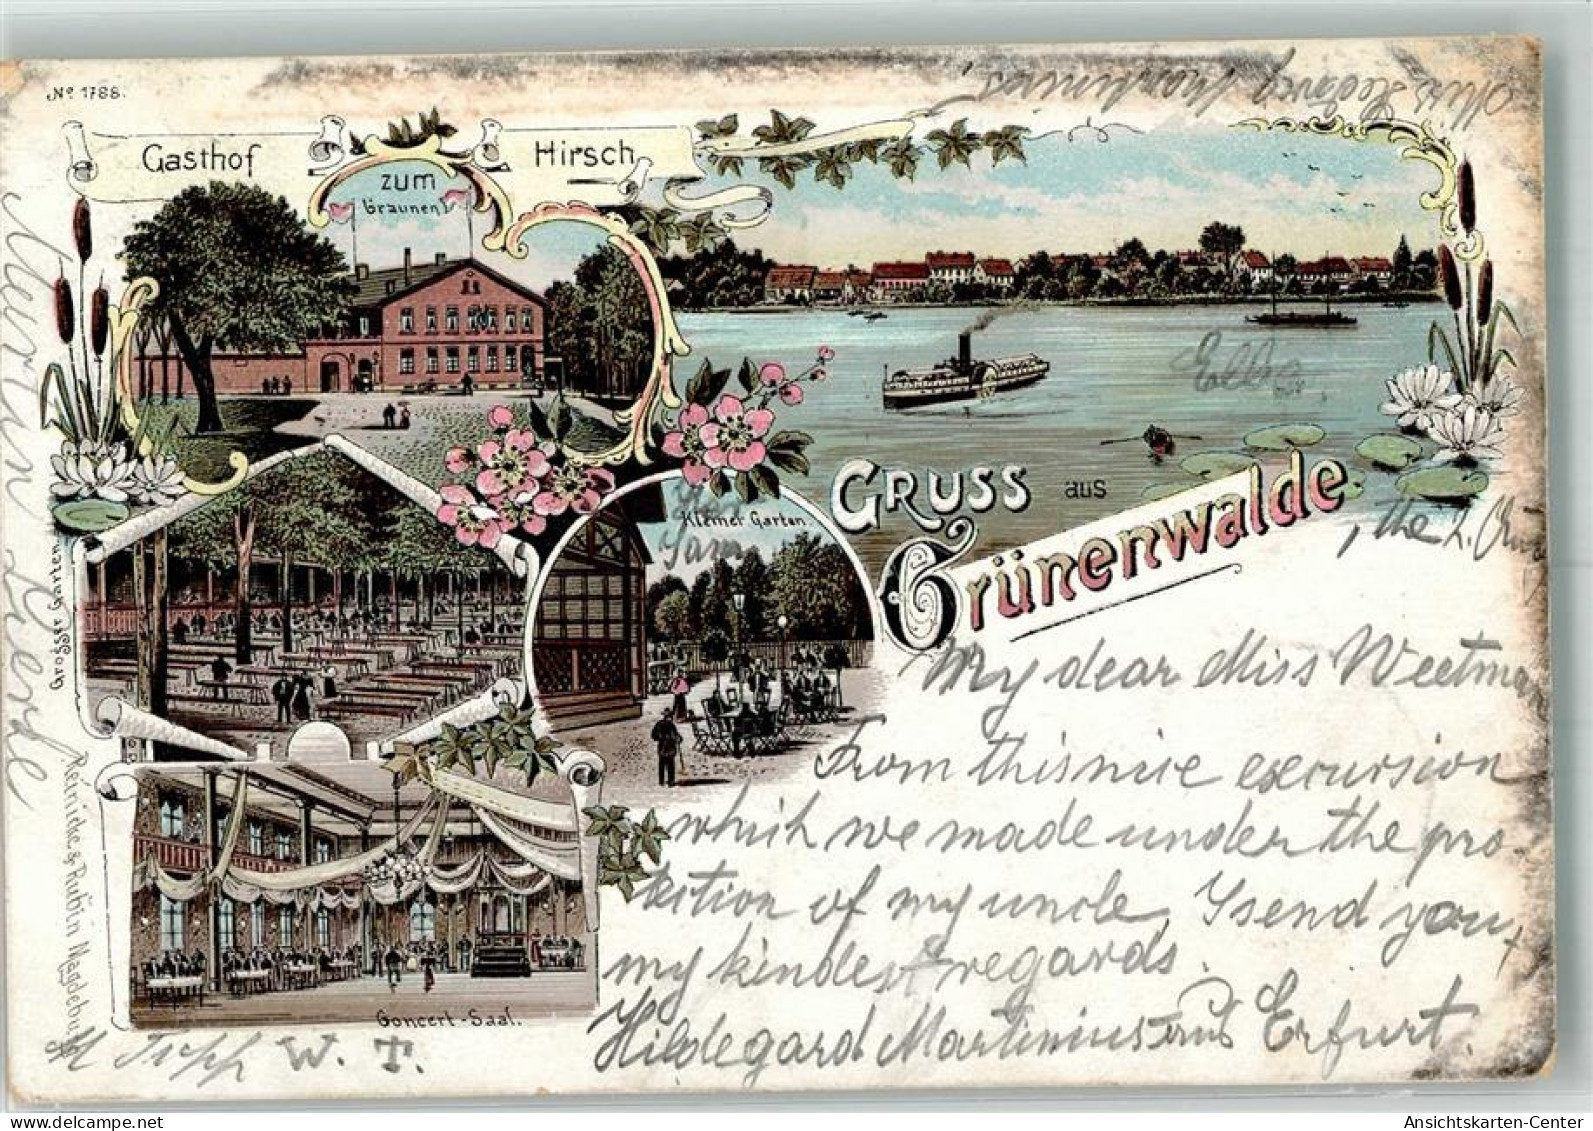 No 1788.
Gasthof
zum
braunen
Hirsch
Elbe
GRUSS aus
Grünenwalde
, the 2.
Kleiner Garten
Grosser Garten
My dear Miss Weetman
From this nice excursion
which we made under the pro-
tection of my uncle, I send you
my kindest regards.
Hildegard Martinius Erfurt.
Concert-Saal.
Reinicke & Rubin Magdeburg
W. T.
Ansichtskarten-Center